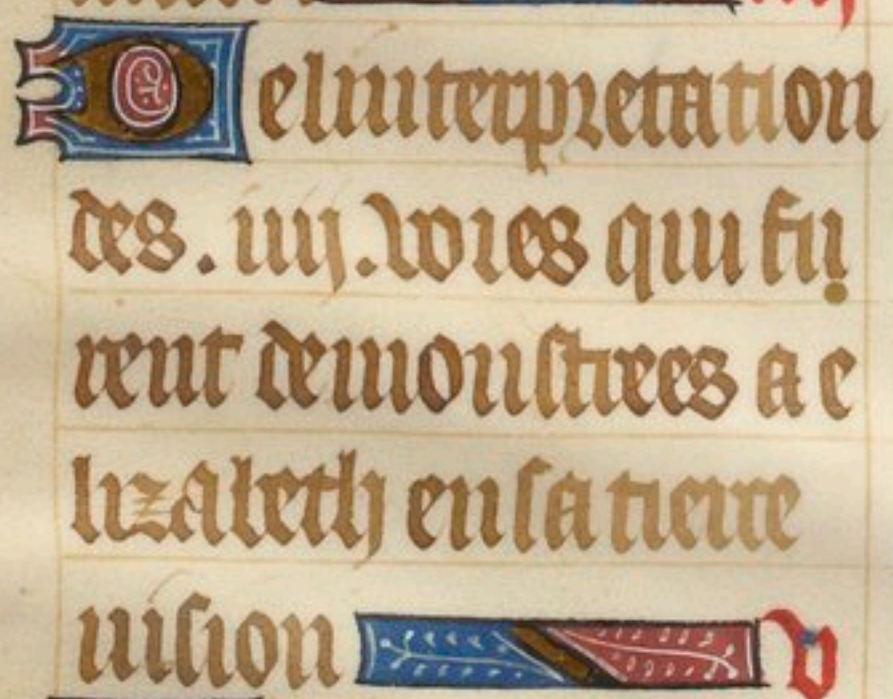 Del interpretation
des .iiij. voies qui fu
rent demonstrees a e
lizabeth en sa tierce
uision v